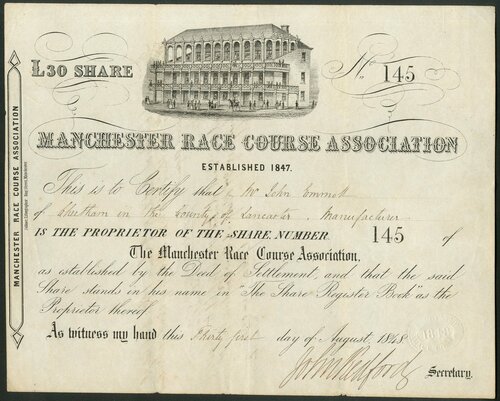 £30 SHARE
No. 145
MANCHESTER RACE COURSE ASSOCIATION
ESTABLISHED 1847.
This is to Certify that Mr John Emmott
of Cheetham in the County of Lancaster, Manufacturer
IS THE PROPRIETOR OF THE SHARE NUMBER 145 of
The Manchester Race Course Association,
as established by the Deed of Settlement, and that the said
Share stands in his name in "The Share Register Book" as the
Proprietor thereof
As witness my hand this Thirty first day of August, 1848
John Redford
Secretary.
MANCHESTER RACE COURSE ASSOCIATION